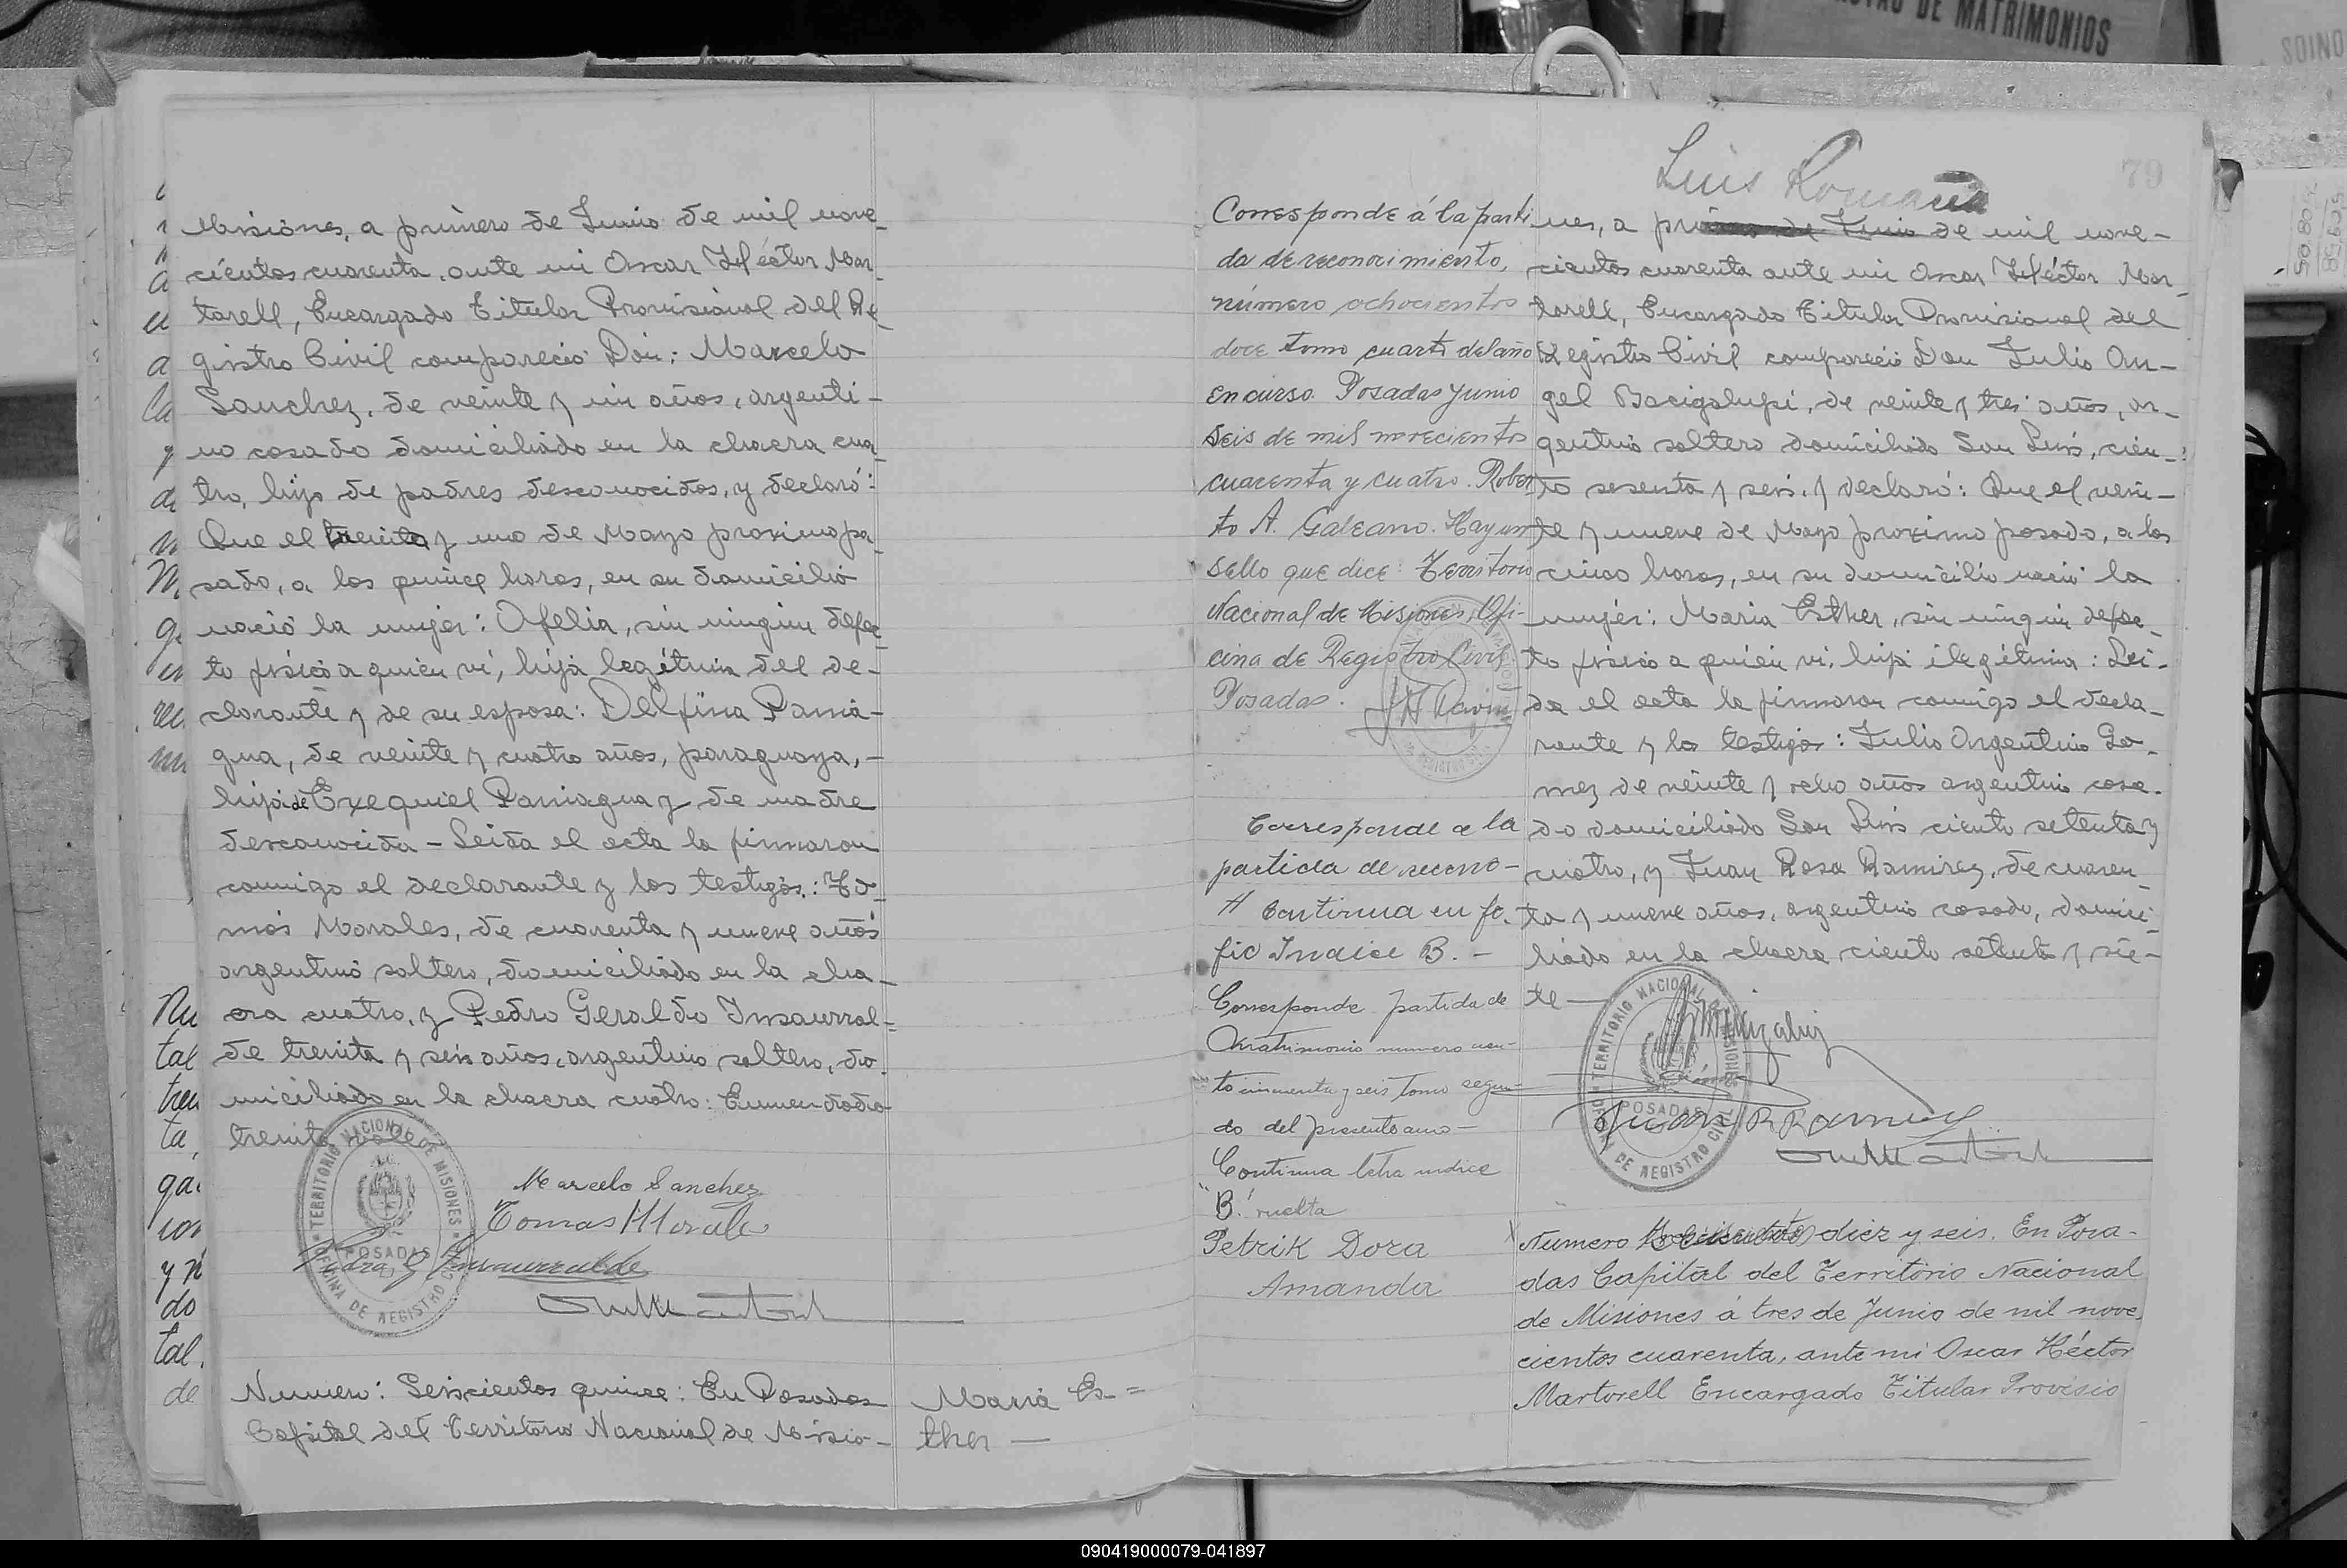 STAS DE MATRIMONIOS
Misiones, a primero de Junio de mil nove-
cientos cuarenta, ante mi Oscar Héctor Mar-
torell, Encargado Titular Provisional del Re-
gistro Civil compareció Don: Marcelo
Sanchez, de veinte y un años, argenti-
no casado domiciliado en la chacra cua-
tro, hijo de padres desconocidos, y declaró:
Que el treinta y uno de Mayo proximo pa-
sado, a las quince horas, en su domicilio
nació la mujer: Ofelia, sin ningun defec-
to físico a quien ví, hija legítima del de-
clarante y de su esposa: Delfina Pania-
gua, de veinte y cuatro años, paraguaya, -
hija de Exequiel Paniagua y de madre
desconocida - Leida el acta la firmaron
conmigo el declarante y los testigos: To-
más Morales, de cuarenta y nueve años
argentino soltero, domiciliado en la cha-
cra cuatro, y Pedro Geraldo Insaurral-
de treinta y seis años, argentino soltero, do-
miciliado en la chacra cuatro: Enmendado
treinta vale
TERRITORIO NACIONAL DE MISIONES
POSADAS
OFICINA DE REGISTRO CIVIL
Marcelo Sanchez
Tomas Morales
Pedro G Insaurralde
Numero: Seiscientos quince: En Posadas
Capital del Territorio Nacional de Misio-
Maria Es-
ther -
79
Luis Romaña
Corresponde á la parti
da de reconocimiento,
número ochocientos
doce tomo cuarto del año
en curso. Posadas Junio
seis de mil novecientos
cuarenta y cuatro. Rober
to A. Galeano. Hay un
sello que dice: Territorio
Nacional de Misiones, Ofi-
cina de Registro Civil
Posadas.
Corresponde a la
partida de recono-
H Continua en fo.
fio Indice B. -
Corresponde partida de
Matrimonio numero cien-
to cincuenta y seis Tomo segun-
do del presente año -
Continua letra indice
"B" vuelta
Petrik Dora
Amanda
nes, a primero de Junio de mil nove-
cientos cuarenta ante mi Oscar Héctor Mar-
torell, Encargado Titular Provisional del
Registro Civil compareció Don Julio An-
gel Bacigalupi, de veinte y tres años, ar-
gentino soltero domiciliado San Luis, cien-
to sesenta y seis, y declaró: Que el vein-
te y nueve de Mayo proximo pasado, a las
cinco horas, en su domicilio nació la
mujer: Maria Esther, sin ningun defec-
to físico a quien vi, hija ilegítima: Lei-
da el acta la firmaron conmigo el decla-
rante y los testigos: Julio Argentino Go-
mez de veinte y ocho años argentino casa-
do domiciliado San Luis ciento setenta y
cuatro, y Juan Rosa Ramirez, de cuaren-
ta y nueve años, argentino casado, domici-
liado en la chacra ciento setenta y sie-
te -
TERRITORIO NACIONAL DE MISIONES
POSADAS
OFICINA DE REGISTRO CIVIL
Juan R Ramirez
Numero diez y seis. En Posa-
das Capital del Territorio Nacional
de Misiones á tres de Junio de mil nove
cientos cuarenta, ante mi Oscar Héctor
Martorell Encargado Titular Provisio
090419000079-041897